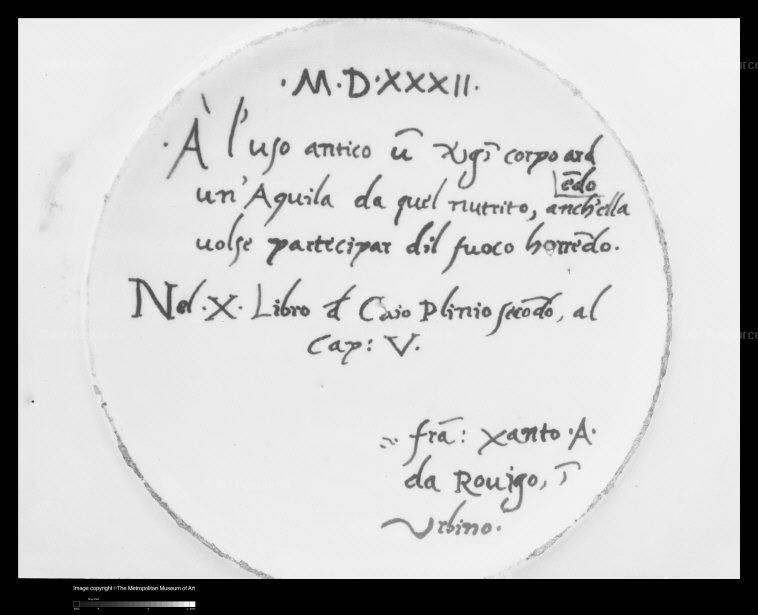 ·M·D·XXXII·
·À l'uso antico ū v̄gī corpo ard
ēdo
un' Aquila da quel nutrito, anch'ella
uolse partecipar dil fuoco horrēdo.
Nel·X·Libro d Caio Plinio secōdo, al
cap: V.
frā: Xanto·A·
da Rouigo, ī
Urbino.
Image copyright ©The Metropolitan Museum of Art